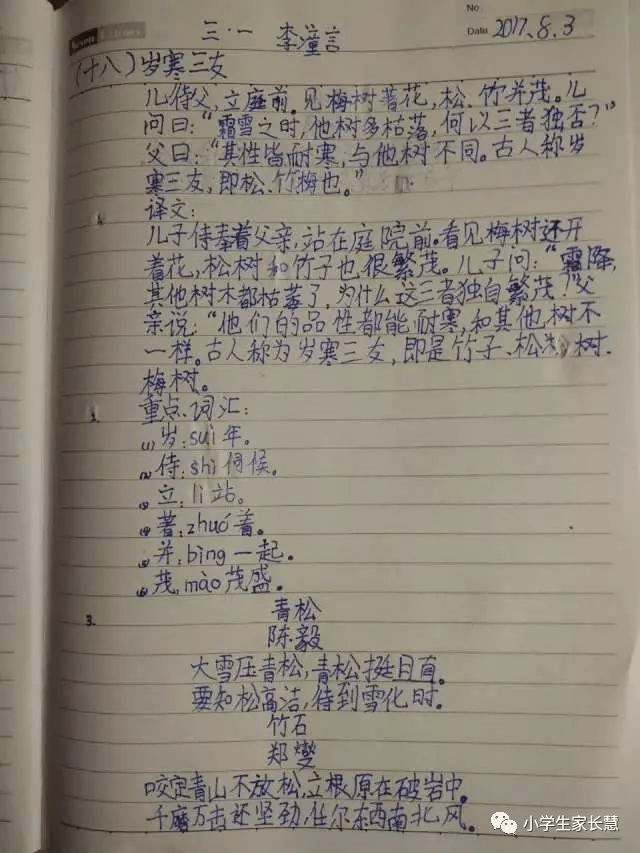 No
三·一 李潼言 Date 2017.8.3
(十八)岁寒三友
儿侍父,立庭前。见梅树著花,松、竹并茂。儿
问曰:“霜雪之时,他树多枯落,何以三者独否?”
父曰:“其性皆耐寒,与他树不同。古人称岁
寒三友,即松、竹梅也。”
译文:
儿子侍奉着父亲,站在庭院前。看见梅树还开
着花,松树和竹子也很繁茂。儿子问:“霜降,
其他树木都枯萎了,为什么这三者独自繁茂?父
亲说:“他们的品性都能耐寒,和其他树不
一样。古人称为岁寒三友,即是竹子、松树、
梅树。
重点词汇:
(1)岁:suì年。
(2)侍:shì伺候。
(3)立:lì站。
(4)著:zhuó着。
(5)并:bìng一起。
(6)茂:mào茂盛。
3.
青松
陈毅
大雪压青松,青松挺且直。
要知松高洁,待到雪化时。
竹石
郑燮
咬定青山不放松,立根原在破岩中。
千磨万击还坚劲,任尔东西南北风。
小学生家长慧